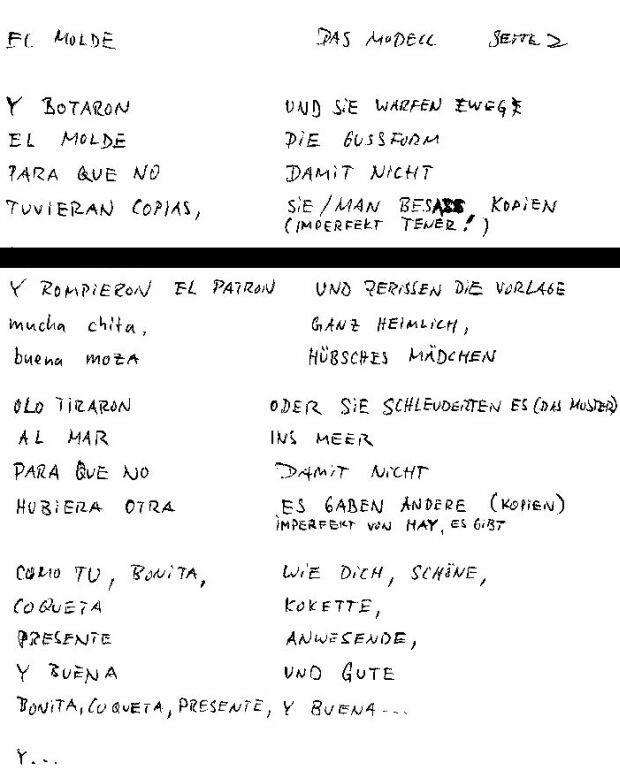 EL MOLDE DAS MODELL SEITE 2
Y BOTARON UND SIE WARFEN WEG
EL MOLDE DIE GUSSFORM
PARA QUE NO DAMIT NICHT
TUVIERAN COPIAS, SIE/MAN BESASS KOPIEN
(IMPERFEKT TENER!)
Y ROMPIERON EL PATRON UND ZERISSEN DIE VORLAGE
mucha chita, GANZ HEIMLICH,
buena moza HÜBSCHES MÄDCHEN
OLO TIRARON ODER SIE SCHLEUDERTEN ES (DAS MUSTER)
AL MAR INS MEER
PARA QUE NO DAMIT NICHT
HUBIERA OTRA ES GABEN ANDERE (KOPIEN)
IMPERFEKT VON HAY, ES GIBT
COMO TU, BONITA, WIE DICH, SCHÖNE,
COQUETA KOKETTE,
PRESENTE ANWESENDE,
Y BUENA UND GUTE
BONITA, COQUETA, PRESENTE, Y BUENA...
Y...